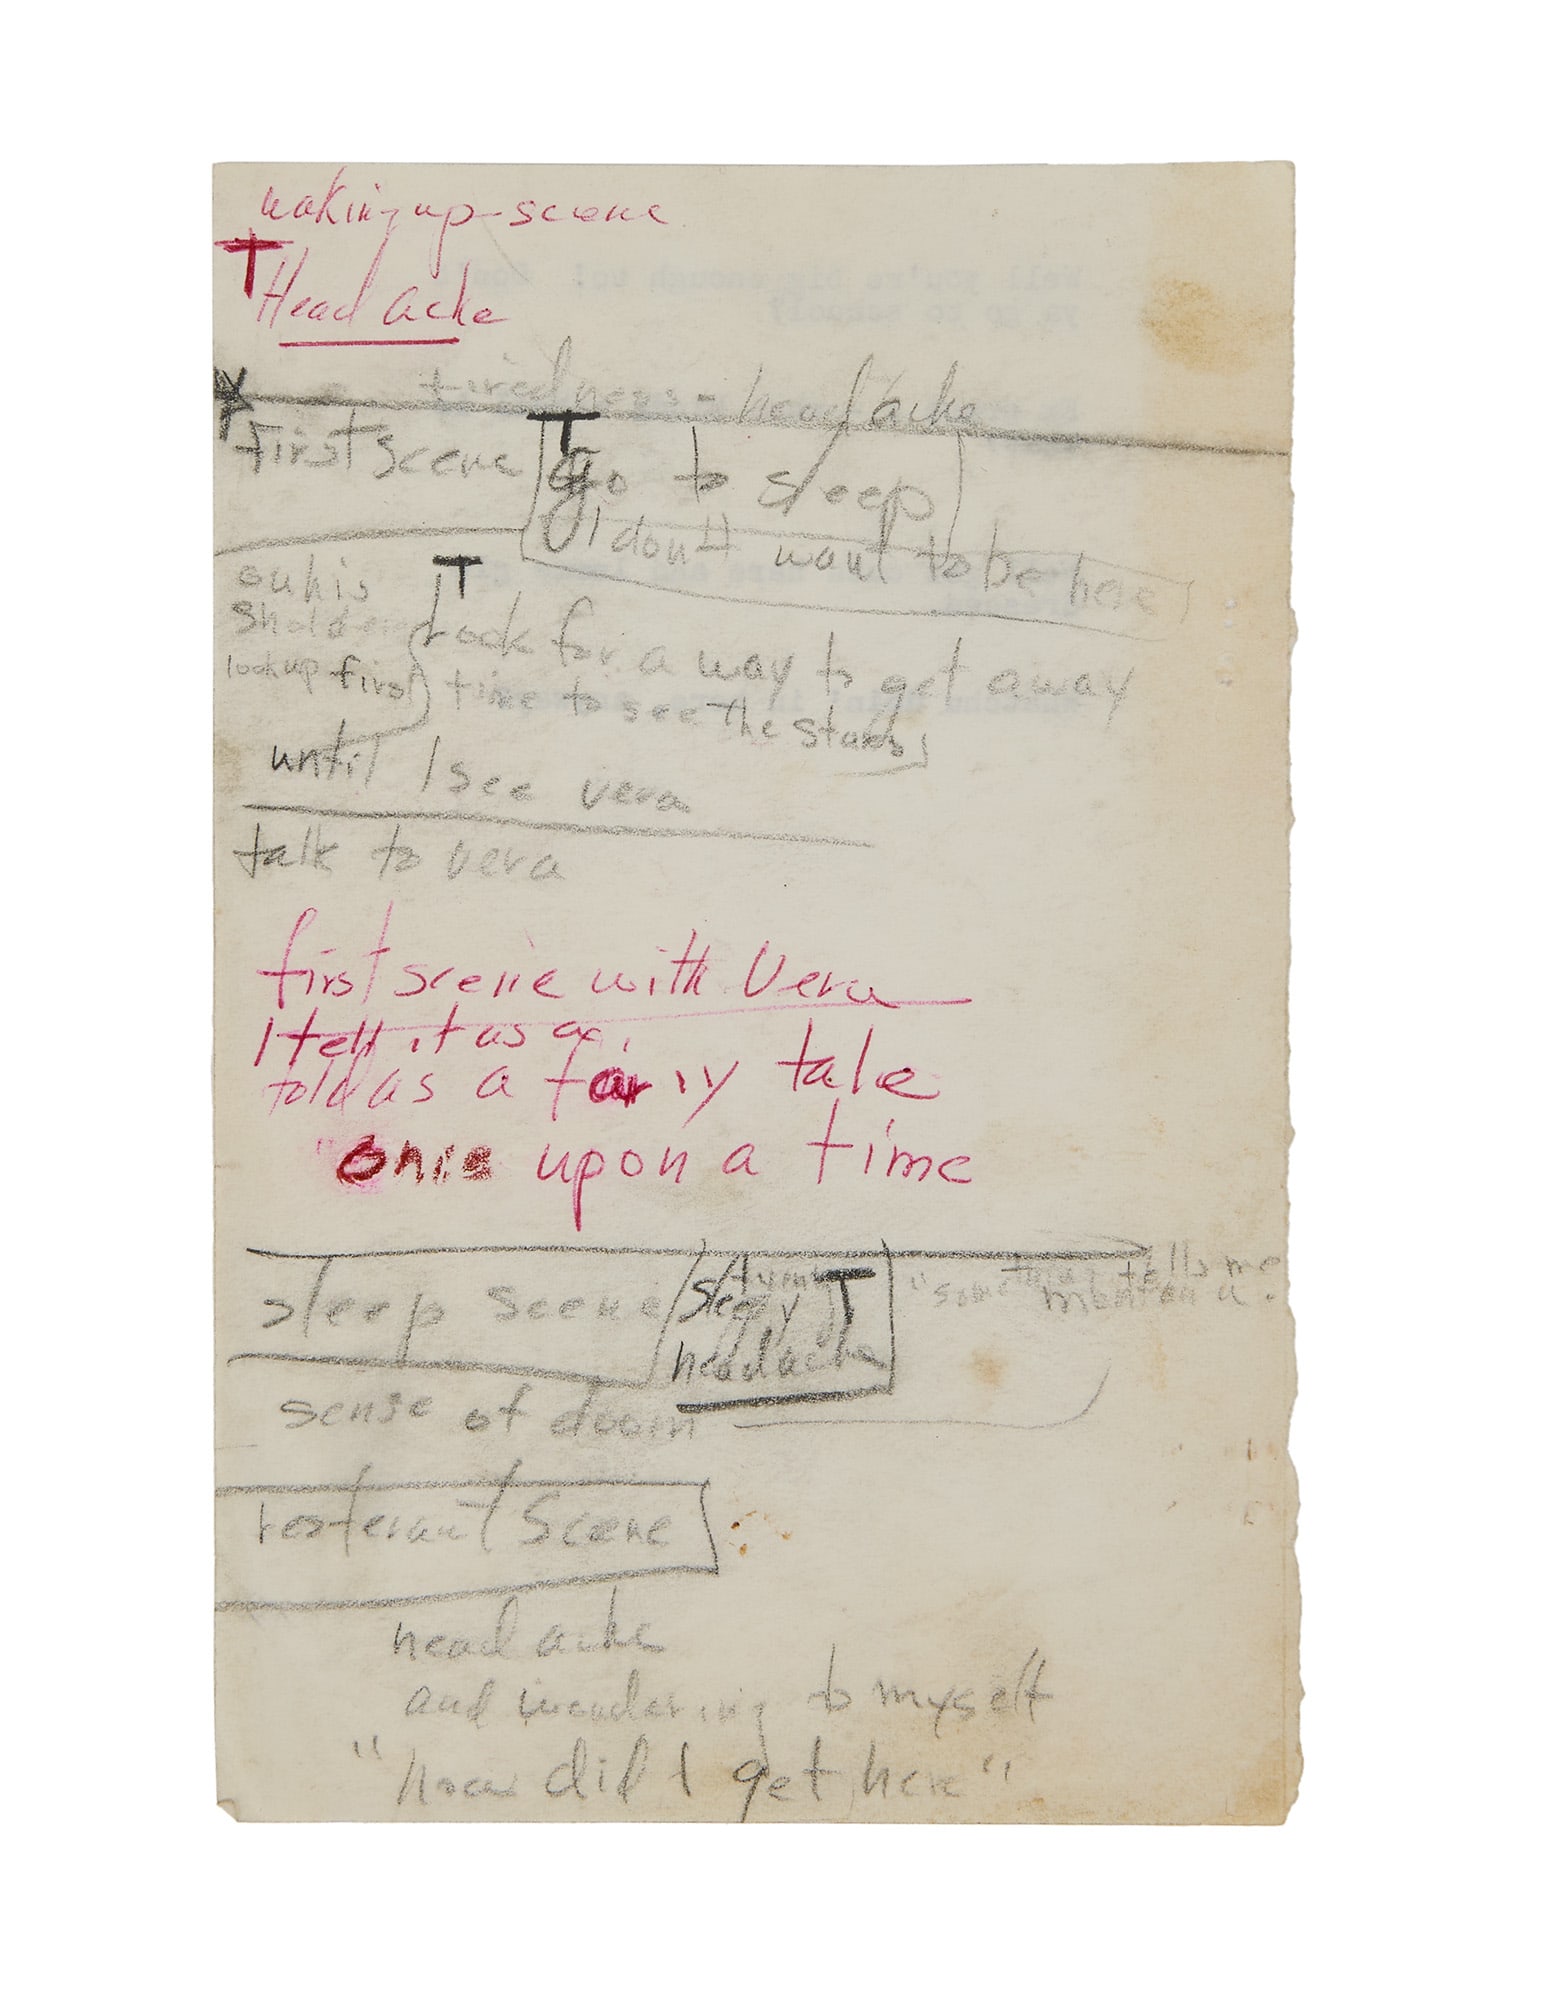 waking up-scene
T
Head ache
tiredness - head ache
first scene
T
go to sleep
I don't want to be here
on his
sholder
T
look for a way to get away
look up first time to see the stars
until I see vera
talk to vera
first scene with Vera
I tell it as a
told as a fairy tale
once upon a time
sleep scene
sleepy T
headache
"something tells me
sense of doom
resterant Scene
head ache
and wondering to myself
"how did I get here"